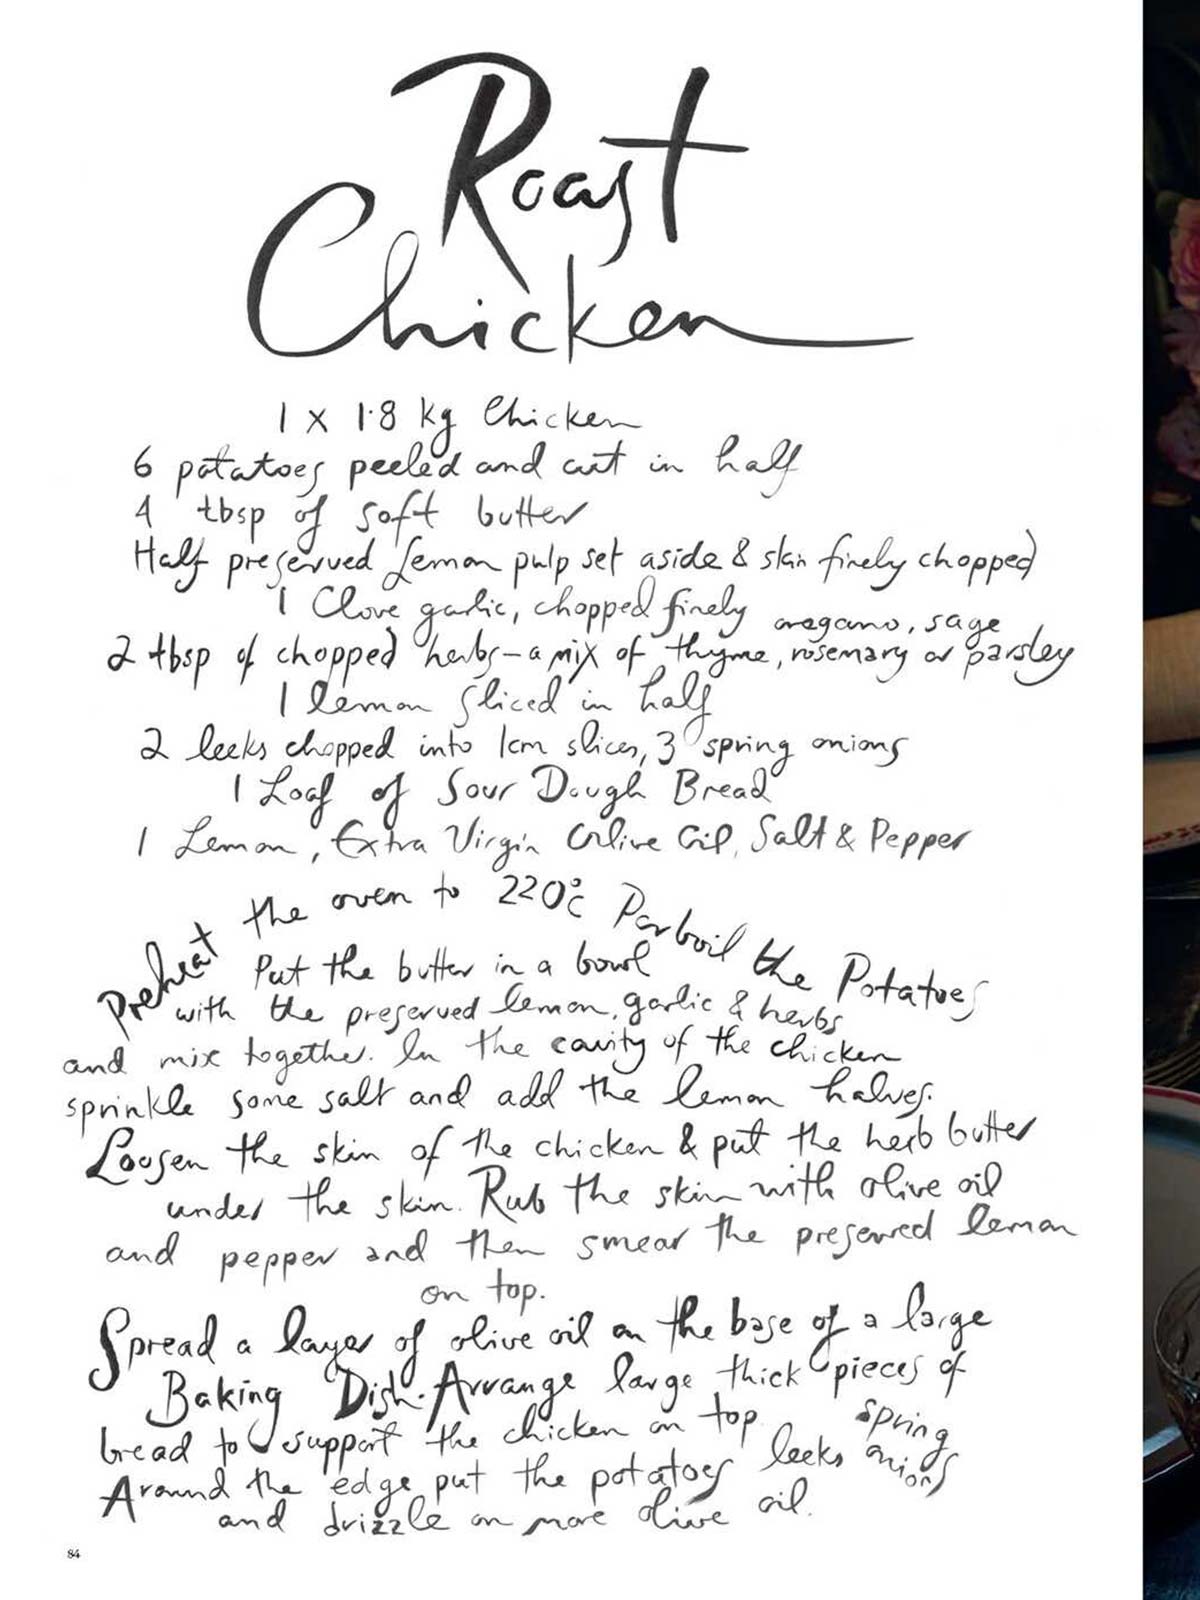 Roast
Chicken
1 x 1.8 kg Chicken
6 potatoes peeled and cut in half
4 tbsp of soft butter
Half preserved Lemon pulp set aside & skin finely chopped
1 Clove garlic, chopped finely
oregano, sage
2 tbsp of chopped herbs - a mix of thyme, rosemary or parsley
1 lemon sliced in half
2 leeks chopped into 1cm slices, 3 spring onions
1 Loaf of Sour Dough Bread
1 Lemon, Extra Virgin Olive Oil, Salt & Pepper
Preheat the oven to 220°C Parboil the Potatoes
Put the butter in a bowl
with the preserved lemon, garlic & herbs
and mix together. In the cavity of the chicken
sprinkle some salt and add the lemon halves.
Loosen the skin of the chicken & put the herb butter
under the skin. Rub the skin with olive oil
and pepper and then smear the preserved lemon
on top.
Spread a layer of olive oil on the base of a large
Baking Dish. Arrange large thick pieces of
bread to support the chicken on top
Around the edge put the potatoes leeks spring onions
and drizzle on more olive oil.
84